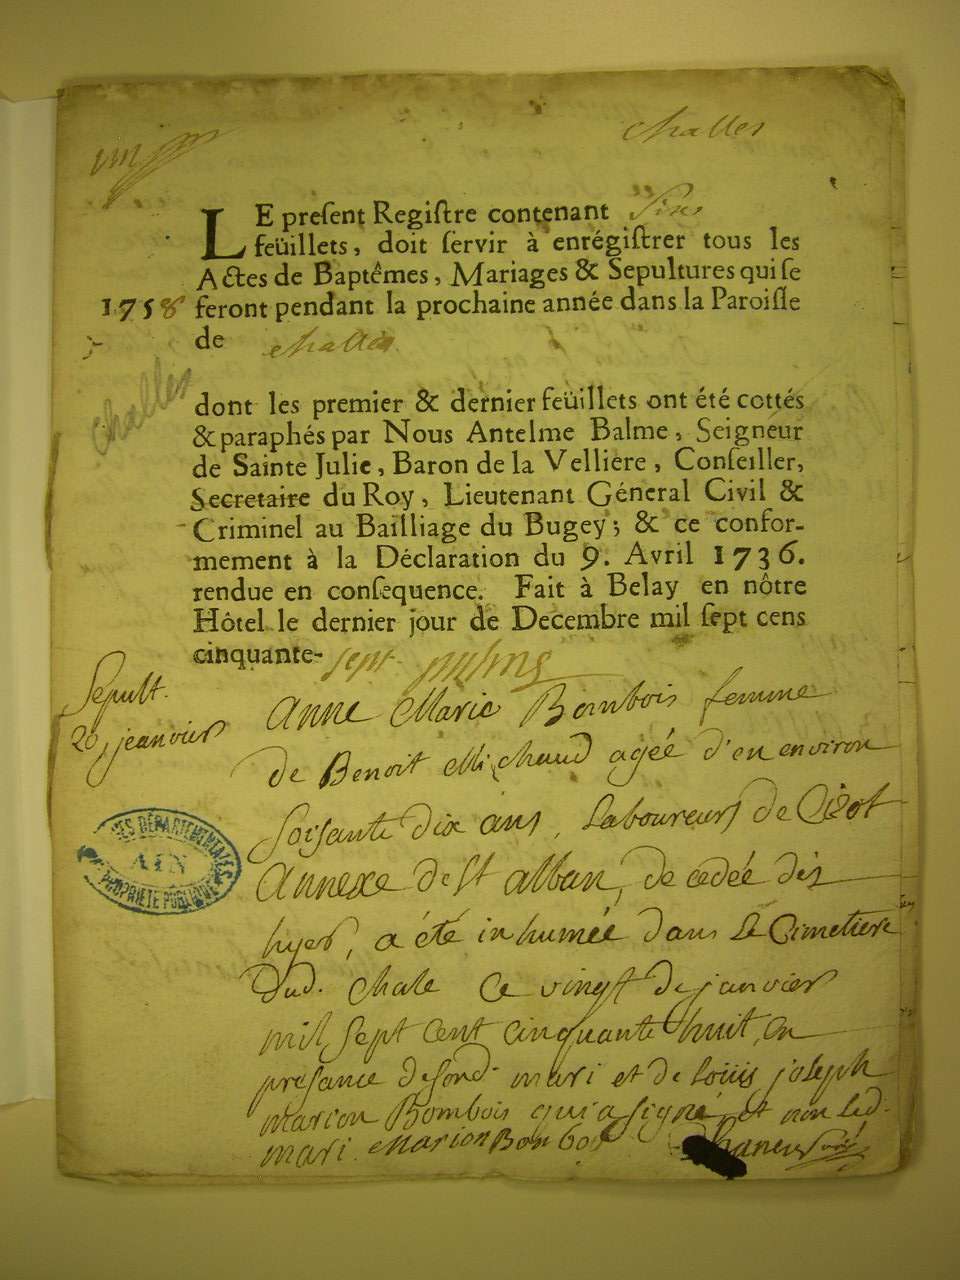 challes
LE preſent Regiſtre contenant Sixs
feüillets, doit ſervir à enrégiſtrer tous les
Actes de Baptêmes, Mariages & Sepultures qui ſe
1758 feront pendant la prochaine année dans la Paroiſſe
de challes
challes
dont les premier & dernier feüillets ont été cottés
& paraphés par Nous Antelme Balme, Seigneur
de Sainte Julie, Baron de la Velliere, Conſeiller,
Secretaire du Roy, Lieutenant Géneral Civil &
Criminel au Bailliage du Bugey; & ce confor-
mement à la Déclaration du 9. Avril 1736.
rendue en conſequence. Fait à Belay en nôtre
Hôtel le dernier jour de Decembre mil ſept cens
cinquante- sept
Sepult.
20 jeanvier
Anne Marie Bombois femme
de Benoit Michaud agée d'en environ
soisante dix ans, Laboureurs de Cizot
Annexe de st alban, de cedée dis
hyer, a été inhumée dans Le Cimetiere
Dud. Chale Ce vingt de janvier
mil sept cent cinquante huit, en
presance de sond. mari et de Louis joseph
marion Bombois qui a signé, et non led.
mari. Marion Bonbos
ARCHIVES DÉPARTEMENTALES
AIN
PROPRIÉTÉ PUBLIQUE